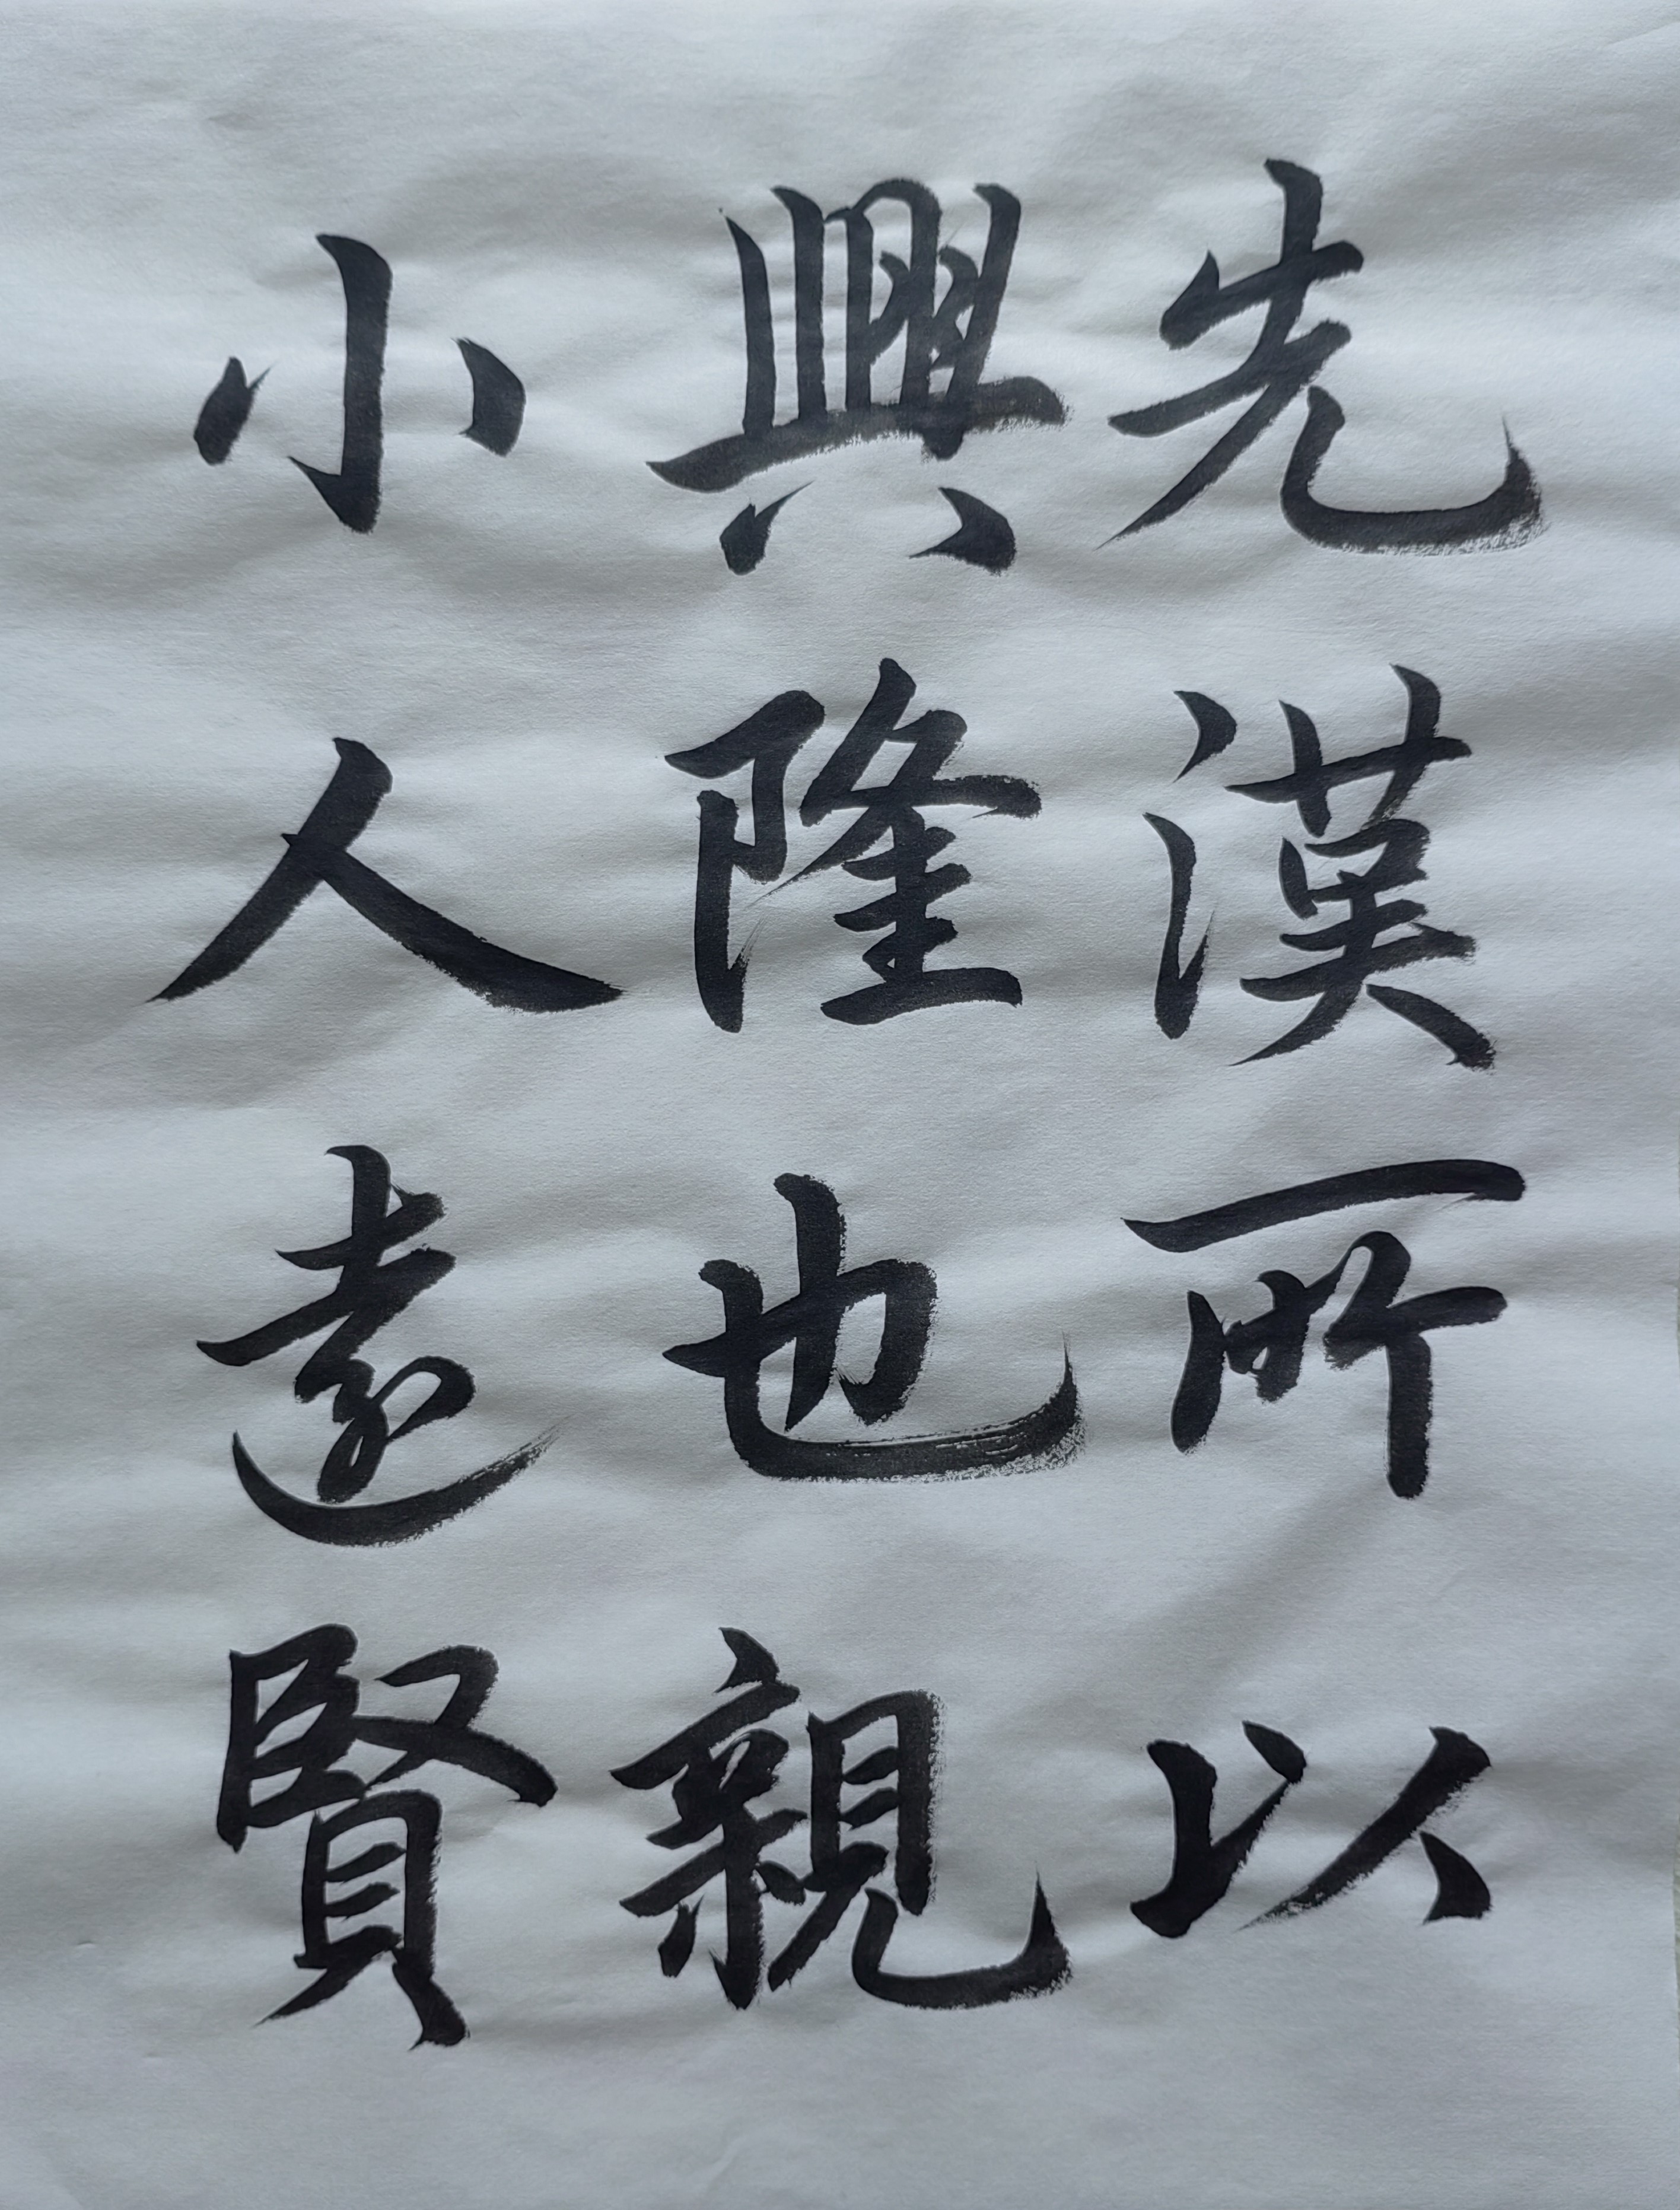 先漢所以
興隆也親
小人遠賢